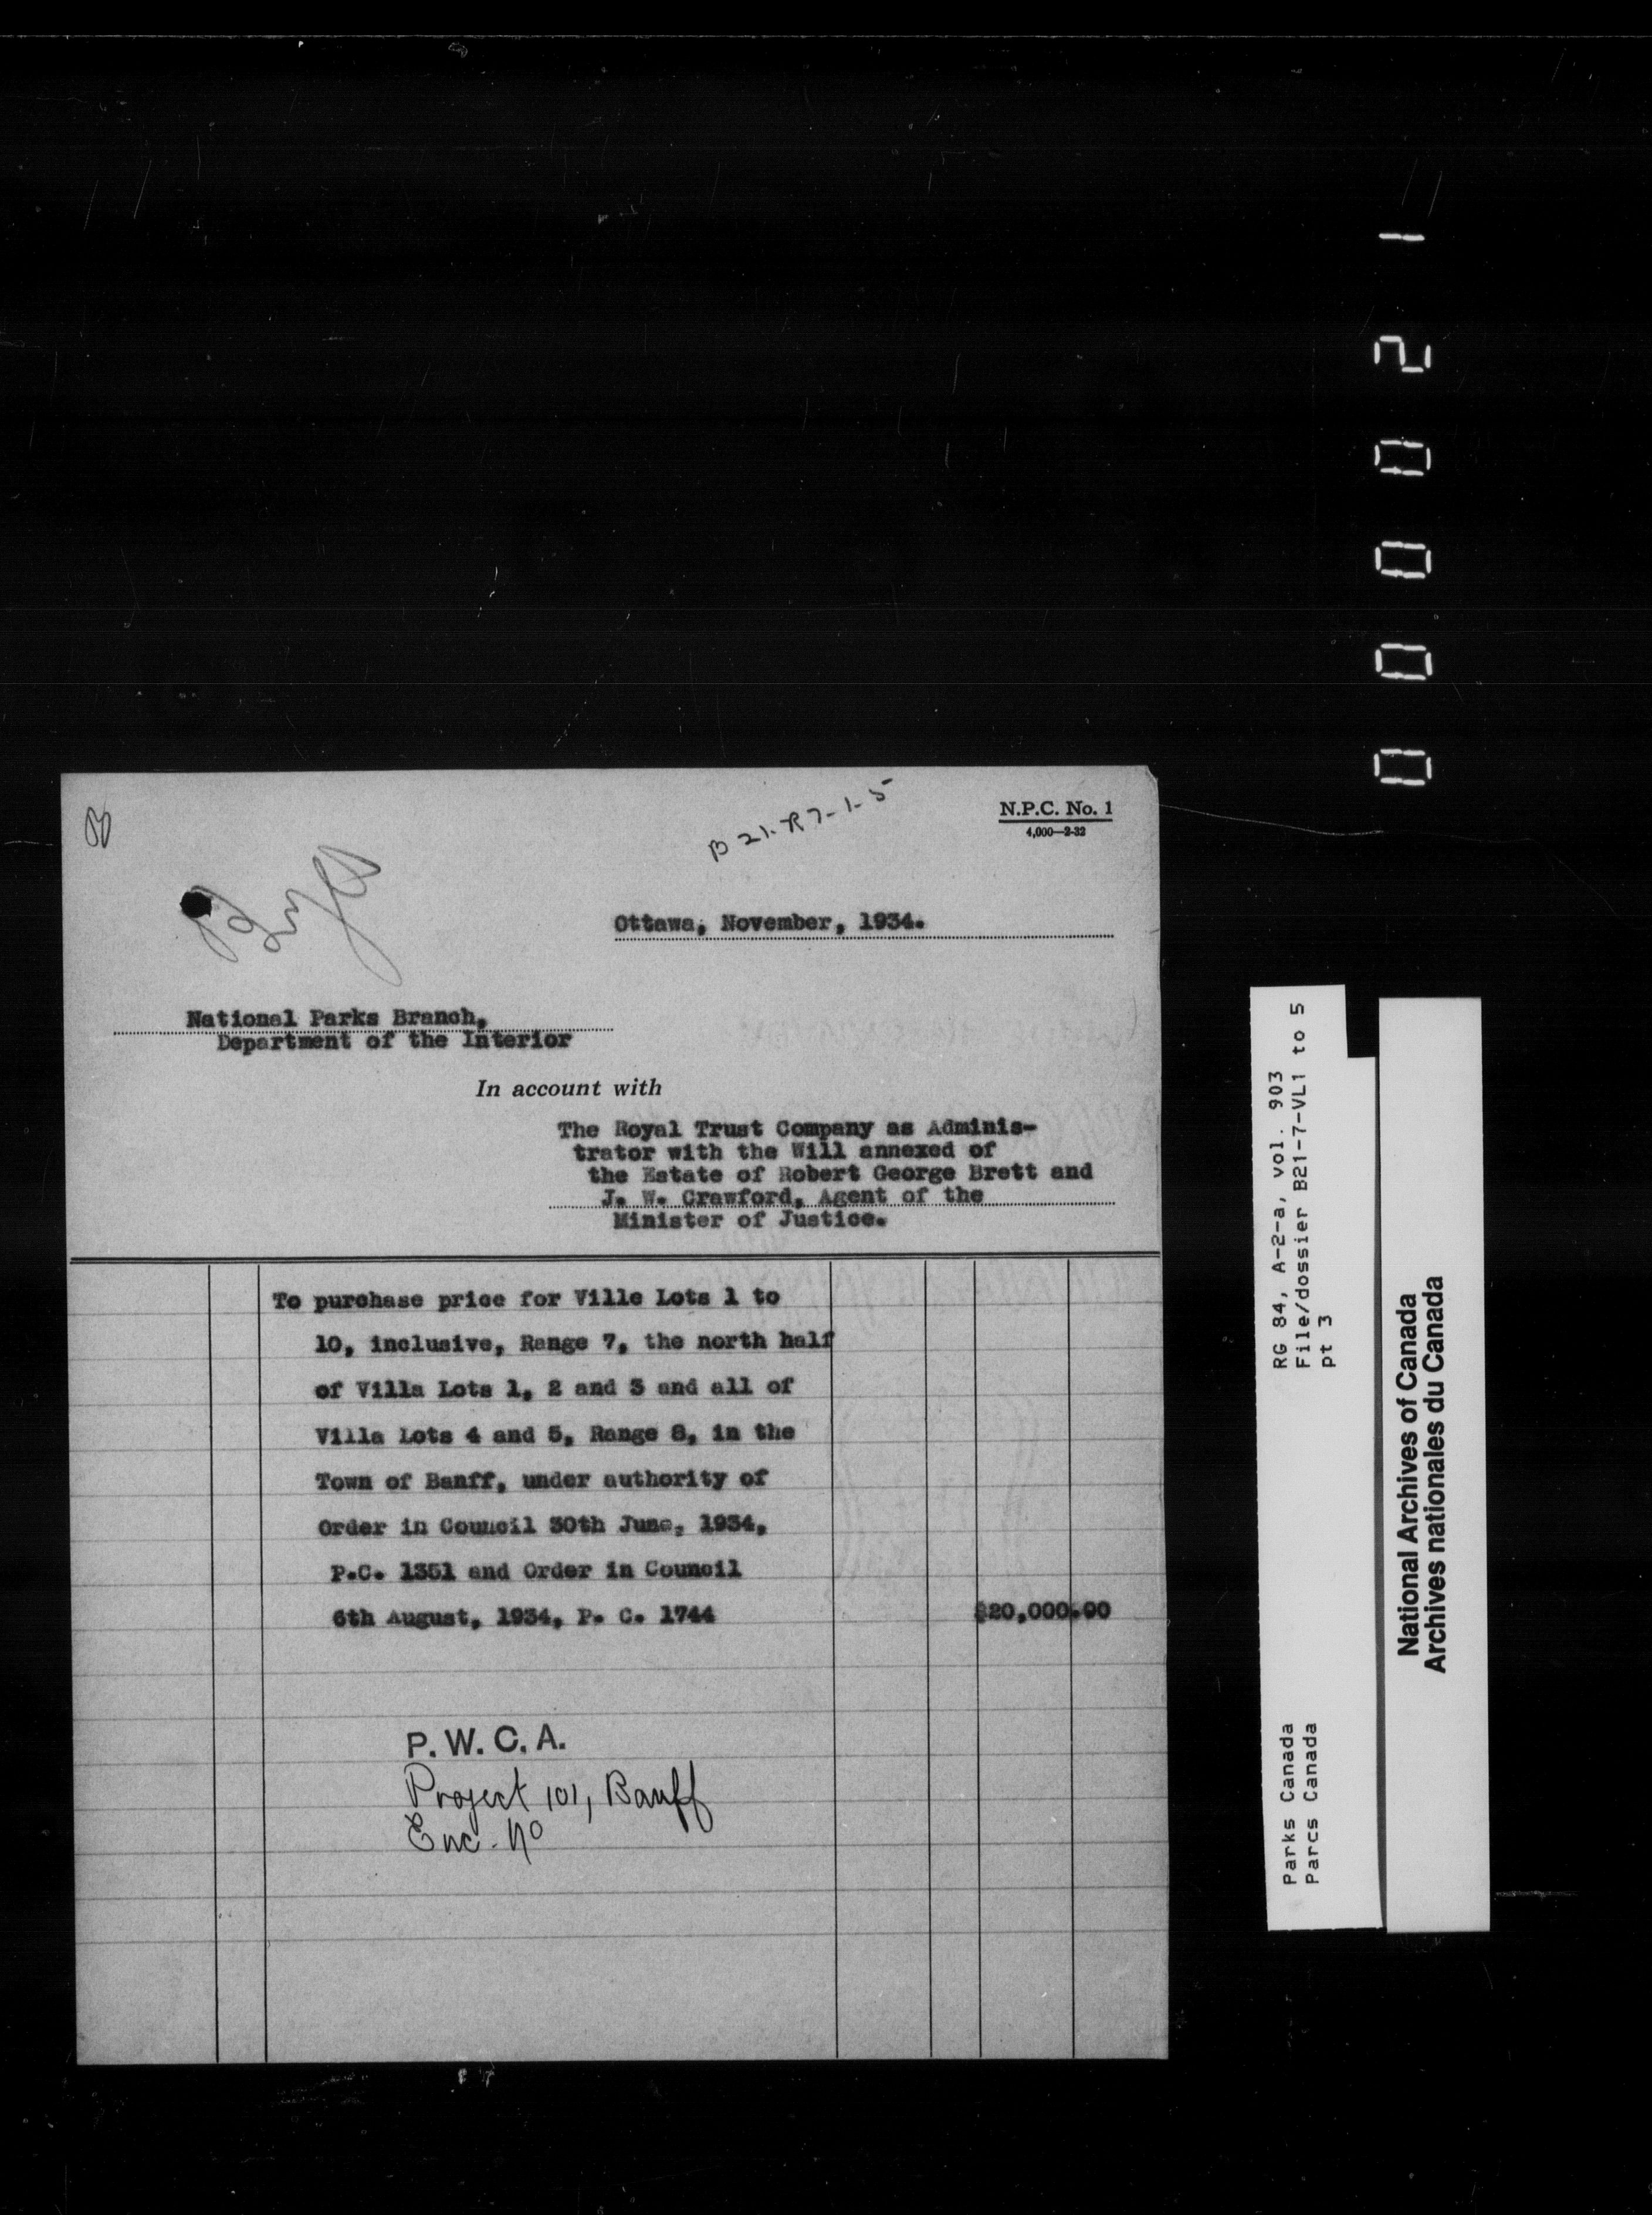 B 21-R7-1-5
N.P.C. No. 1
4,000—2-32
Ottawa, November, 1934.
National Parks Branch,
Department of the Interior
In account with
The Royal Trust Company as Adminis-
trator with the Will annexed of
the Estate of Robert George Brett and
J. W. Crawford, Agent of the
Minister of Justice.
To purchase price for Ville Lots 1 to
10, inclusive, Range 7, the north half
of Villa Lots 1, 2 and 3 and all of
Villa Lots 4 and 5, Range 8, in the
Town of Banff, under authority of
Order in Council 30th June, 1934,
P.C. 1351 and Order in Council
6th August, 1934, P. C. 1744 $20,000.00
P. W. C. A.
Project 101, Banff
Enc. No
000021
RG 84, A-2-a, vol. 903
File/dossier B21-7-VL1 to 5
pt 3
Parks Canada
Parcs Canada
National Archives of Canada
Archives nationales du Canada